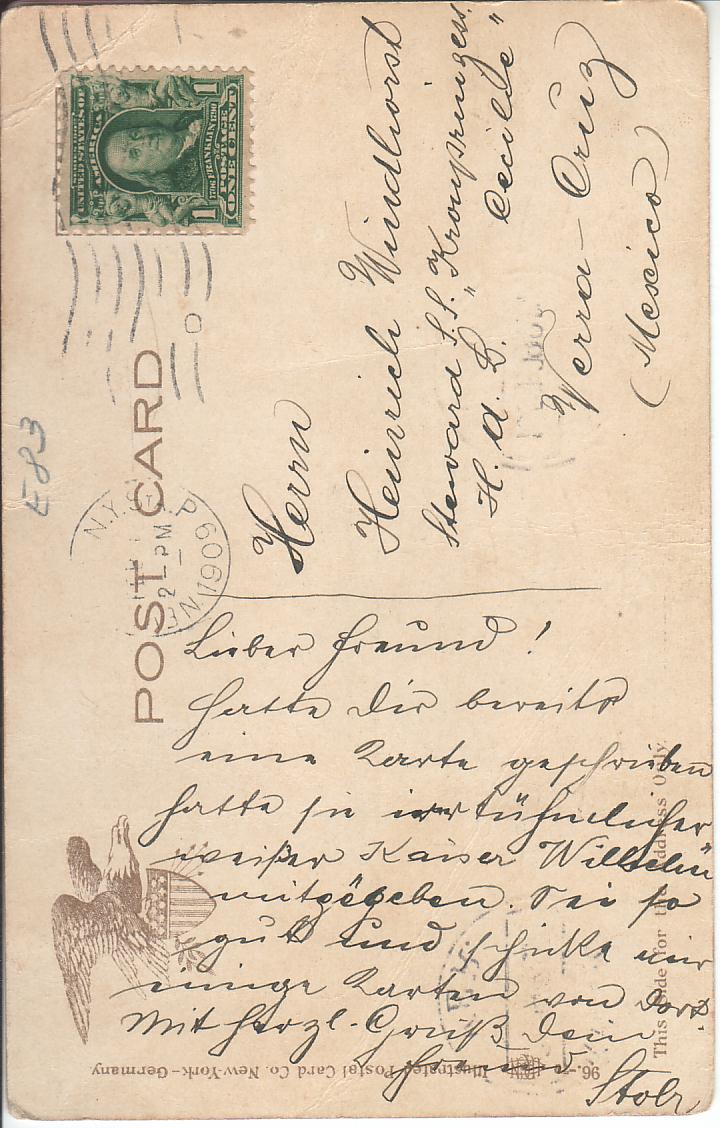 UNITED STATES OF AMERICA
1706 FRANKLIN 1790
POSTAGE
1 ONE CENT 1
POST CARD
E83
N.Y.
2 - PM
1909
Herrn
Heinrich Windhorst
Steward S.S. „Kronprinzess.
H. A. L. Cecilie"
Verra-Cruz
(Mexico)
Lieber Freund!
Hatte Dir bereits
eine Karte geschrieben
hatte sie irrtühmlicher
weißer Kaiser Wilhelm
mitgegeben. Sei so
gut und schicke mir
einige Karten von dort.
Mit herzl. Gruß Dein
Freund
Stolz
This Side for the Address Only.
96.-7 Illustrated Postal Card Co. New-York-Germany